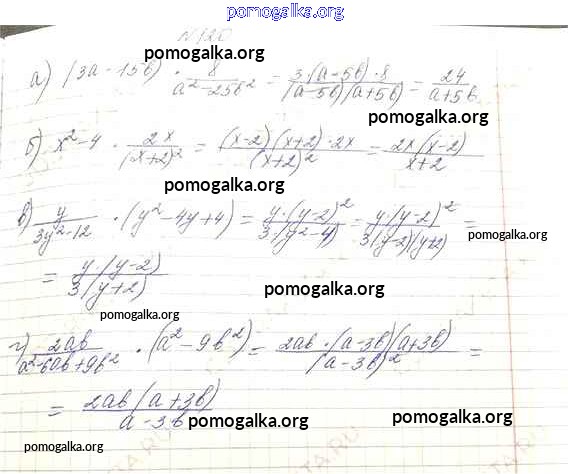 pomogalka.org
N 120
pomogalka.org
а) (3a - 15b) · 8/(a² - 25b²) = 3·(a-5b)·8/((a-5b)(a+5b)) = 24/(a+5b)
pomogalka.org
б) x² - 4 · 2x/(x+2)² = (x-2)(x+2)·2x/(x+2)² = 2x(x-2)/(x+2)
pomogalka.org
pomogalka.org
в) y/(3y²-12) · (y² - 4y + 4) = y·(y-2)²/(3·(y²-4)) = y·(y-2)²/(3(y-2)(y+2)) =
pomogalka.org
= y(y-2)/(3(y+2))
pomogalka.org
pomogalka.org
г) 2ab/(a²-6ab+9b²) · (a² - 9b²) = 2ab·(a-3b)(a+3b)/(a-3b)² =
= 2ab(a+3b)/(a-3b)
pomogalka.org
pomogalka.org
pomogalka.org